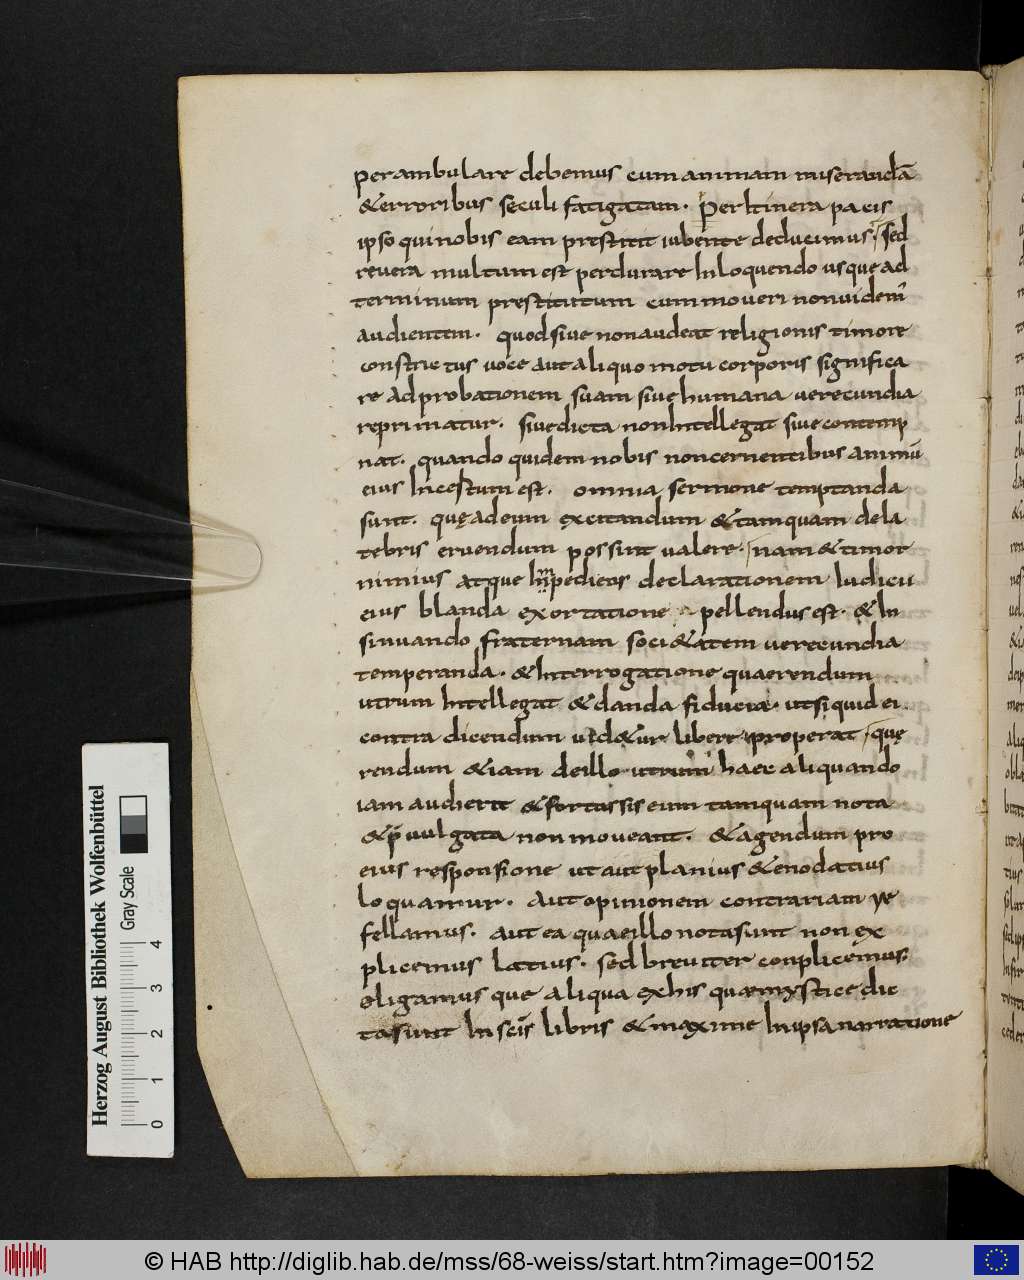 perambulare debemus cum animam miserandā
&erroribus seculi fatigatam. Per Itinera pacis
ipso qui nobis eam prestitit iubente deducimus. sed
revera multum est perdurare In loquendo usque ad
terminum prestitutum cum moveri non videm̄
audientem. quod sive non audeat religionis timore
constrictus voce aut aliquo motu corporis significa
re adprobationem suam sive humana verecundia
reprimatur. sive dicta non Intellegat sive contemp
nat. quando quidem nobis non cernentibus animū
eius Incestum est. omnia sermone temptanda
sunt. quę ad eum excitandum &tamquam de la
tebris eruendum possunt valere. nam & timor
nimius atque Impediens declarationem Iudicii
eius blanda exortatione pellendus est. & In
sinuando fraternam soci&atem verecundia
temperanda. & Interrogatione quaerendum
utrum Intellegat & danda fiducia. ut si quid ei
contra dicendum vid&ur libere properat, quę
rendum &iam de illo utrum haec aliquando
iam audierit &fortassis eum tamquam nota
&p vulgata non moveant. &agendum pro
eius responsione ut aut planius &enodatius
loquamur. Aut opinionem contrariam re
fellamus. aut ea quae illo nota sunt non ex
plicemus latius. sed breviter conplicemus.
eligamus que aliqua ex his quae mystice dic
ta sunt In scīs libris &maxime In ipsa narratione
Herzog August Bibliothek Wolfenbüttel
Gray Scale
0 1 2 3 4
© HAB http://diglib.hab.de/mss/68-weiss/start.htm?image=00152